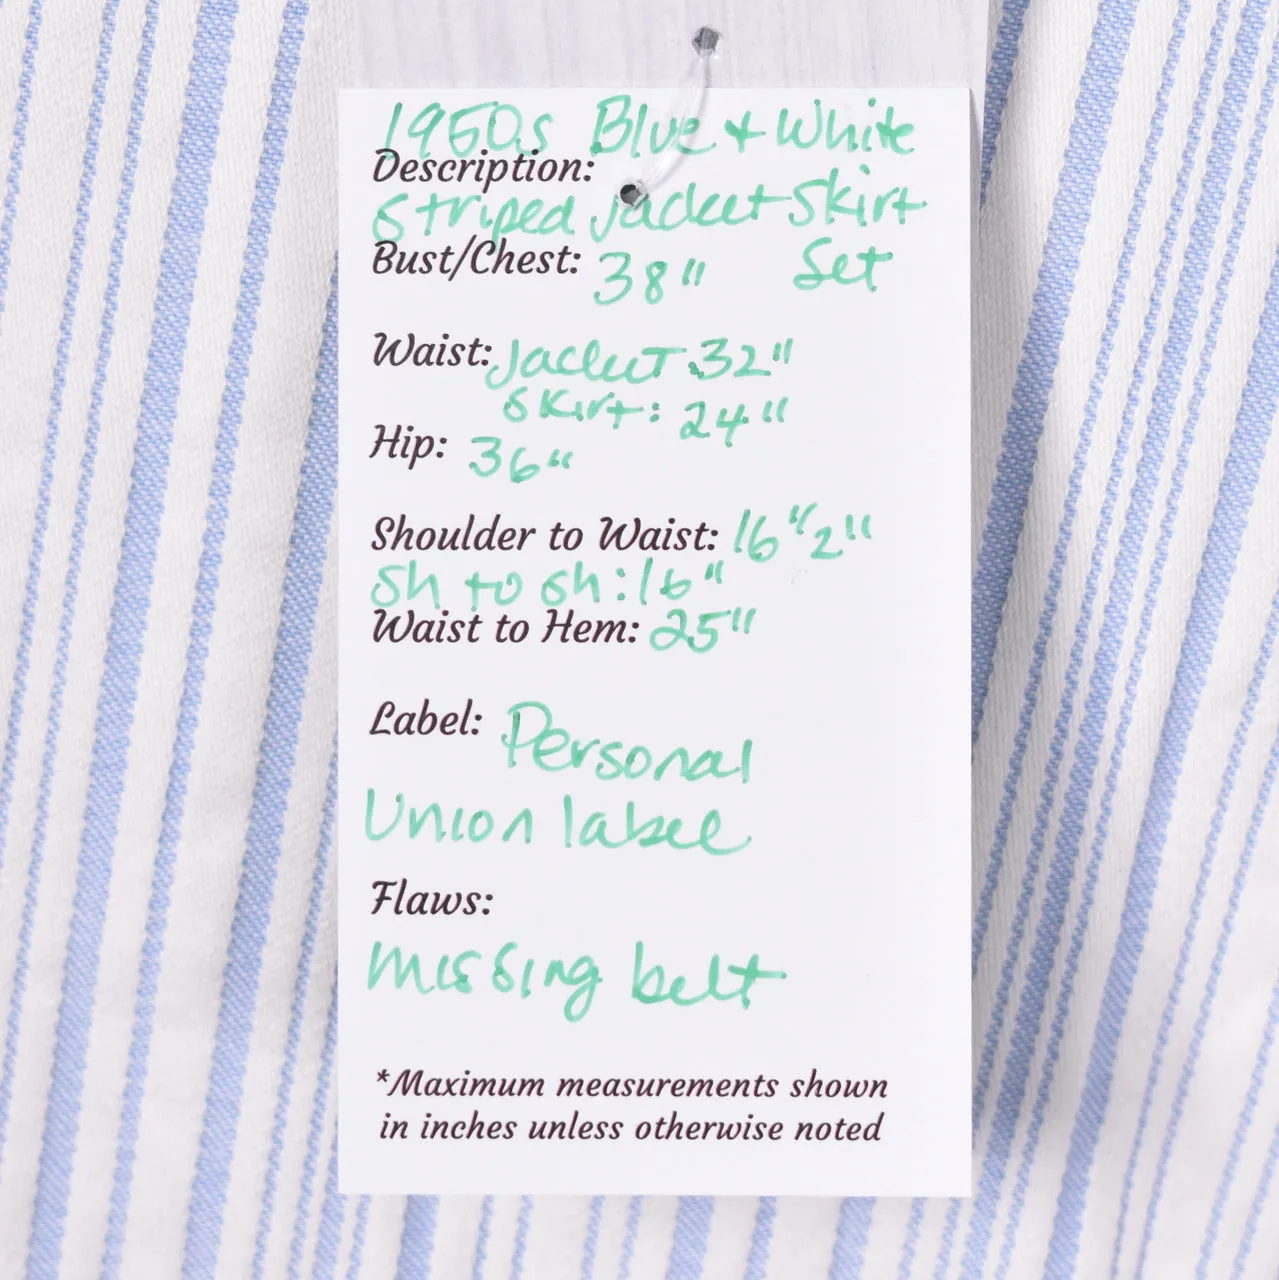 1950s Blue + White
Description:
Striped Jacket Skirt
Bust/Chest: 38" Set
Waist: Jacket 32"
Skirt: 24"
Hip: 36"
Shoulder to Waist: 16 1/2"
Sh to Sh: 16"
Waist to Hem: 25"
Label: Personal
Union label
Flaws:
missing belt
*Maximum measurements shown
in inches unless otherwise noted